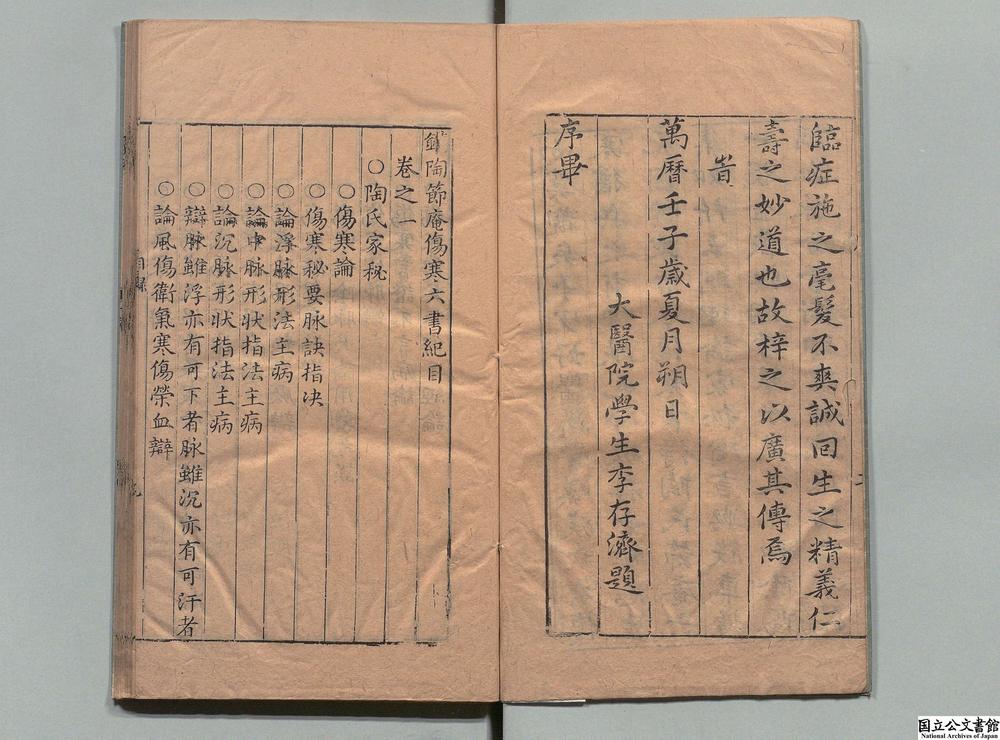 臨症施之毫髮不爽誠回生之精義仁
壽之妙道也故梓之以廣其傳焉
旹
萬曆壬子歲夏月朔日
大醫院學生李存濟題
序畢
陶節庵傷寒六書紀目
卷之一
○陶氏家秘
○傷寒論
○傷寒秘要脉訣指決
○論浮脉形法主病
○論中脉形狀指法主病
○論沉脉形狀指法主病
○辯脉雖浮亦有可下者脉雖沉亦有可汗者
○論風傷衛氣寒傷榮血辯
国立公文書館
National Archives of Japan